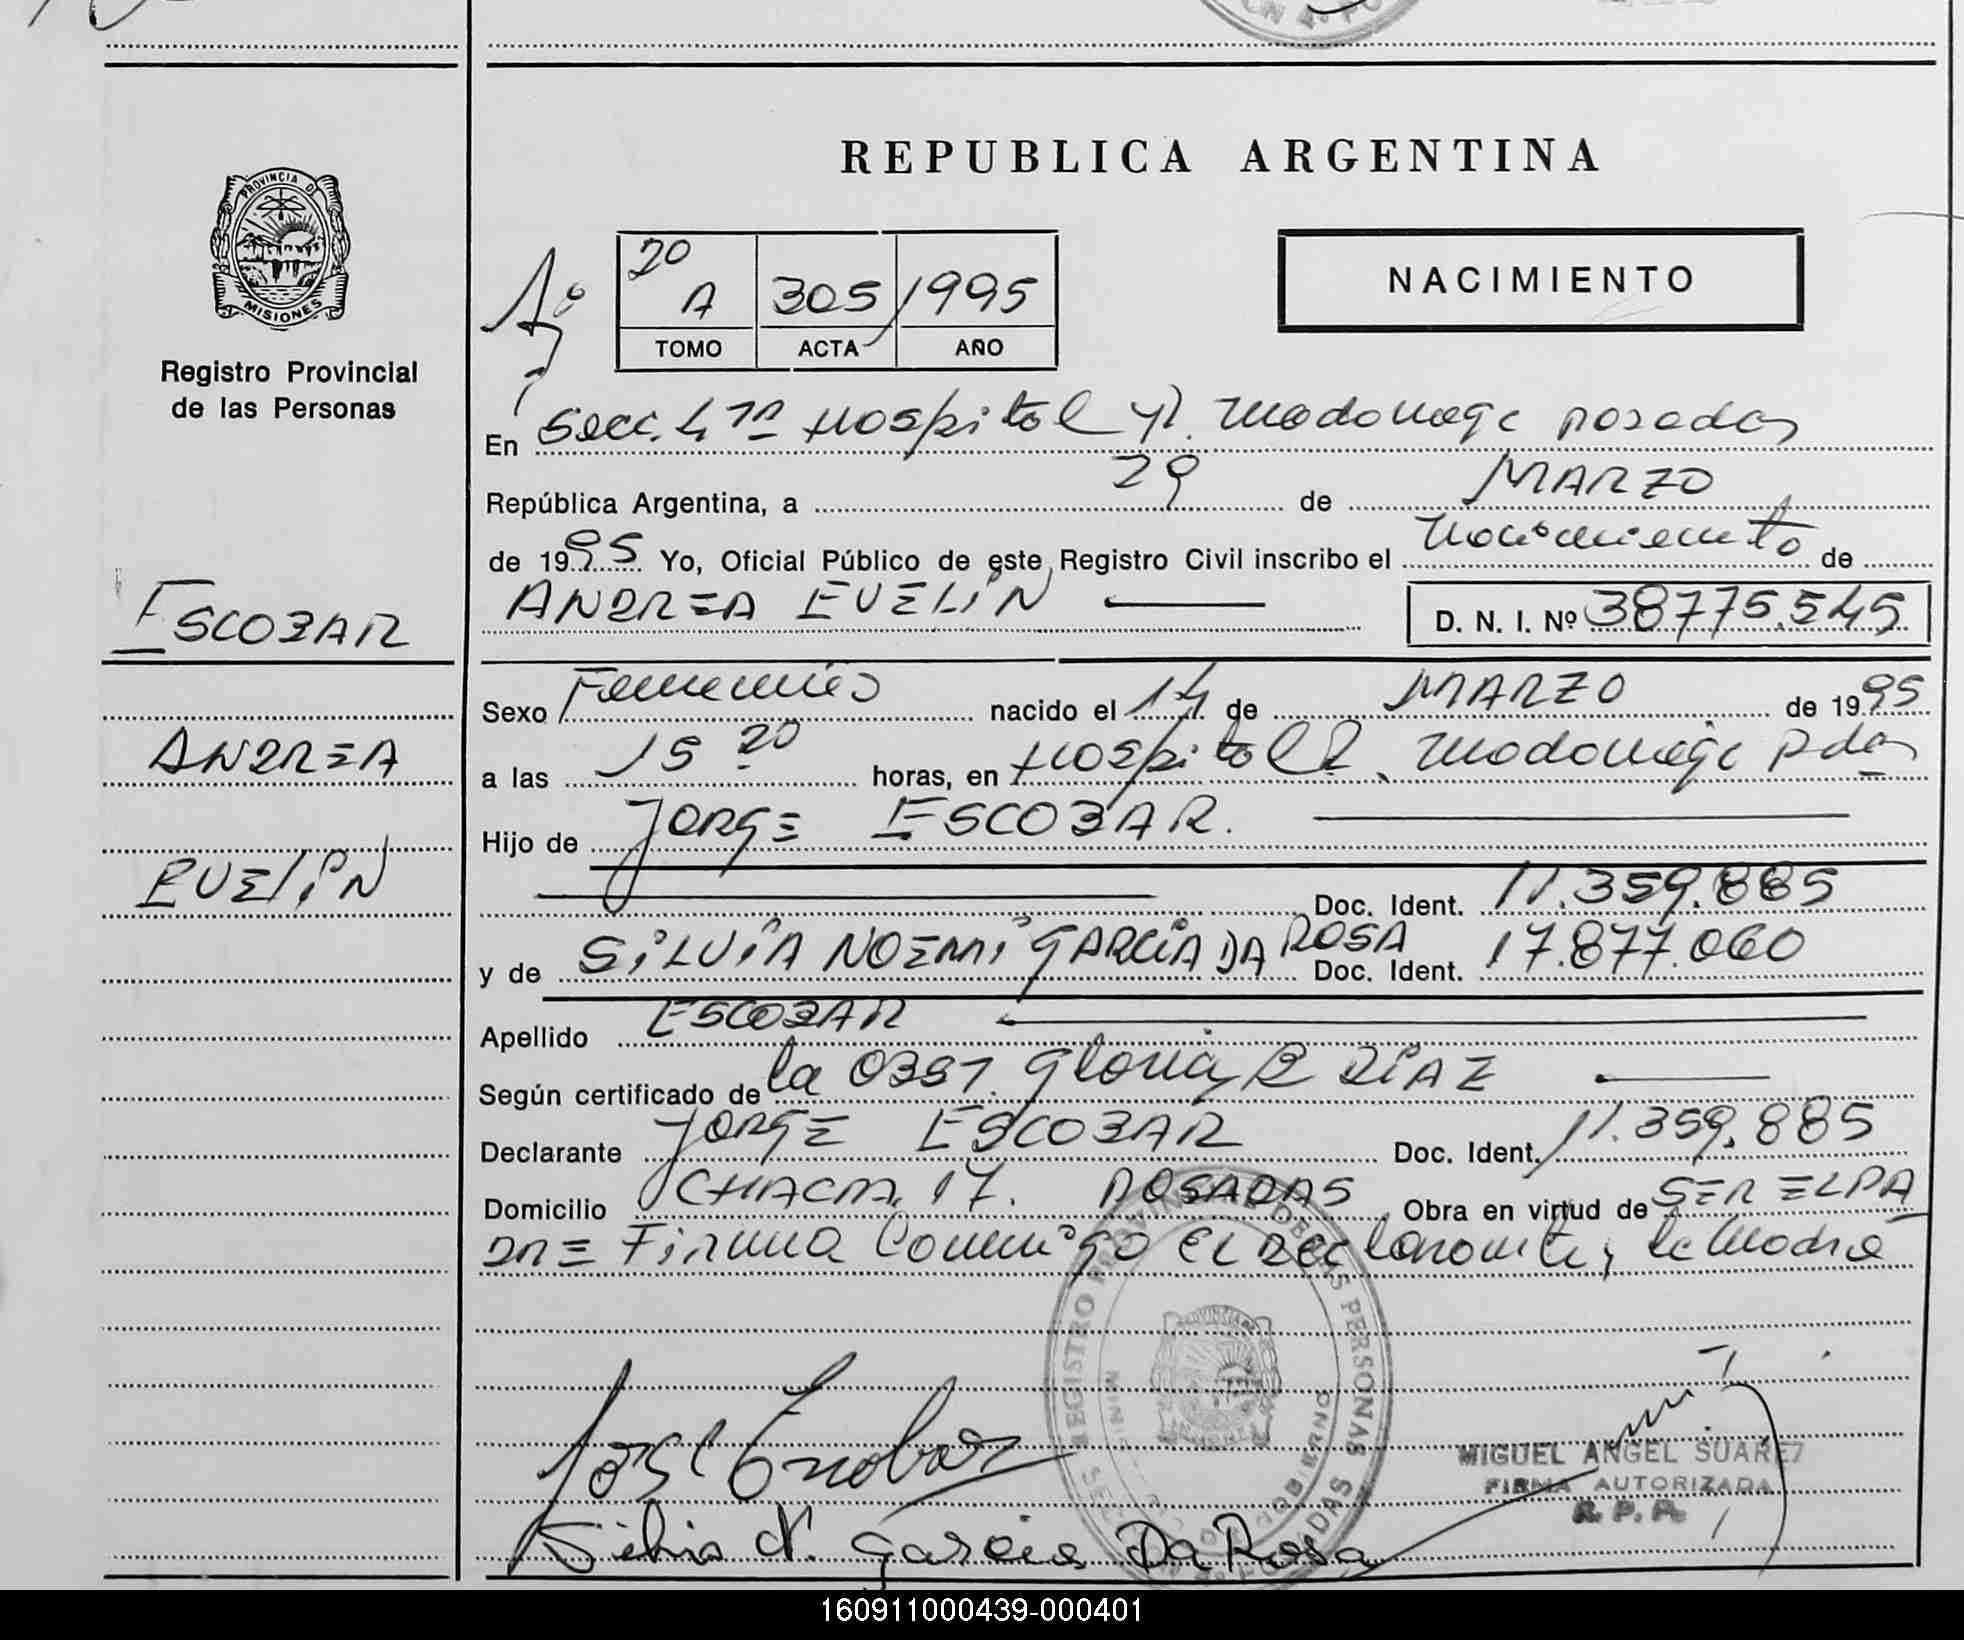 REPUBLICA ARGENTINA
PROVINCIA DE
MISIONES
Registro Provincial
de las Personas
20
A 305 1995
TOMO ACTA AÑO
NACIMIENTO
En Secc. 4ta Hospital R. Madariaga Posadas
República Argentina, a 29 de MARZO
de 1995 Yo, Oficial Público de este Registro Civil inscribo el nacimiento de
ESCOBAR
ANDREA EVELIN
D. N. I. Nº 38775.545
Sexo Femenino nacido el 14 de MARZO de 1995
ANDREA
a las 15 20 horas, en Hospital R. Madariaga Pdas
Hijo de JORGE ESCOBAR.
EVELIN
Doc. Ident. 11.359.885
y de SILVIA NOEMI GARCIA DA ROSA Doc. Ident. 17.877.060
Apellido ESCOBAR
Según certificado de la OBST. Gloria R DIAZ
Declarante JORGE ESCOBAR Doc. Ident. 11.359.885
Domicilio CHACRA 17. POSADAS Obra en virtud de SER EL PA
DRE Firma Conmigo EL DECLARANTE y la Madre
REGISTRO PROVINCIAL DE LAS PERSONAS
Silvia N. Garcia Da Rosa
MIGUEL ANGEL SUAREZ
FIRMA AUTORIZADA
R. P. P.
160911000439-000401